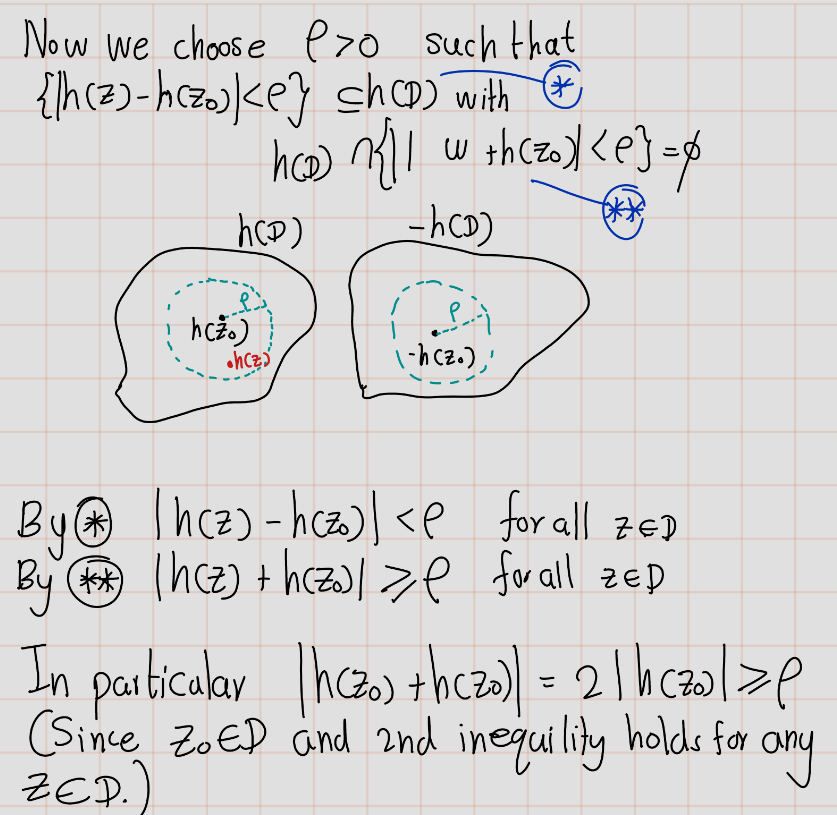 Now we choose ρ>0 such that
{|h(z)-h(z₀)|<ρ} ⊆h(D) with ⊛
h(D) ∩{| | w +h(z₀)|<ρ}=∅
**
h(D) -h(D)
ρ ρ
h(z₀) -h(z₀)
h(z)
By ⊛ |h(z) - h(z₀)| <ρ for all z∈D
By ** |h(z) + h(z₀)| ≥ρ for all z∈D
In particular |h(z₀)+h(z₀)| = 2|h(z₀)| ≥ρ
(Since z₀∈D and 2nd inequility holds for any
z∈D.)